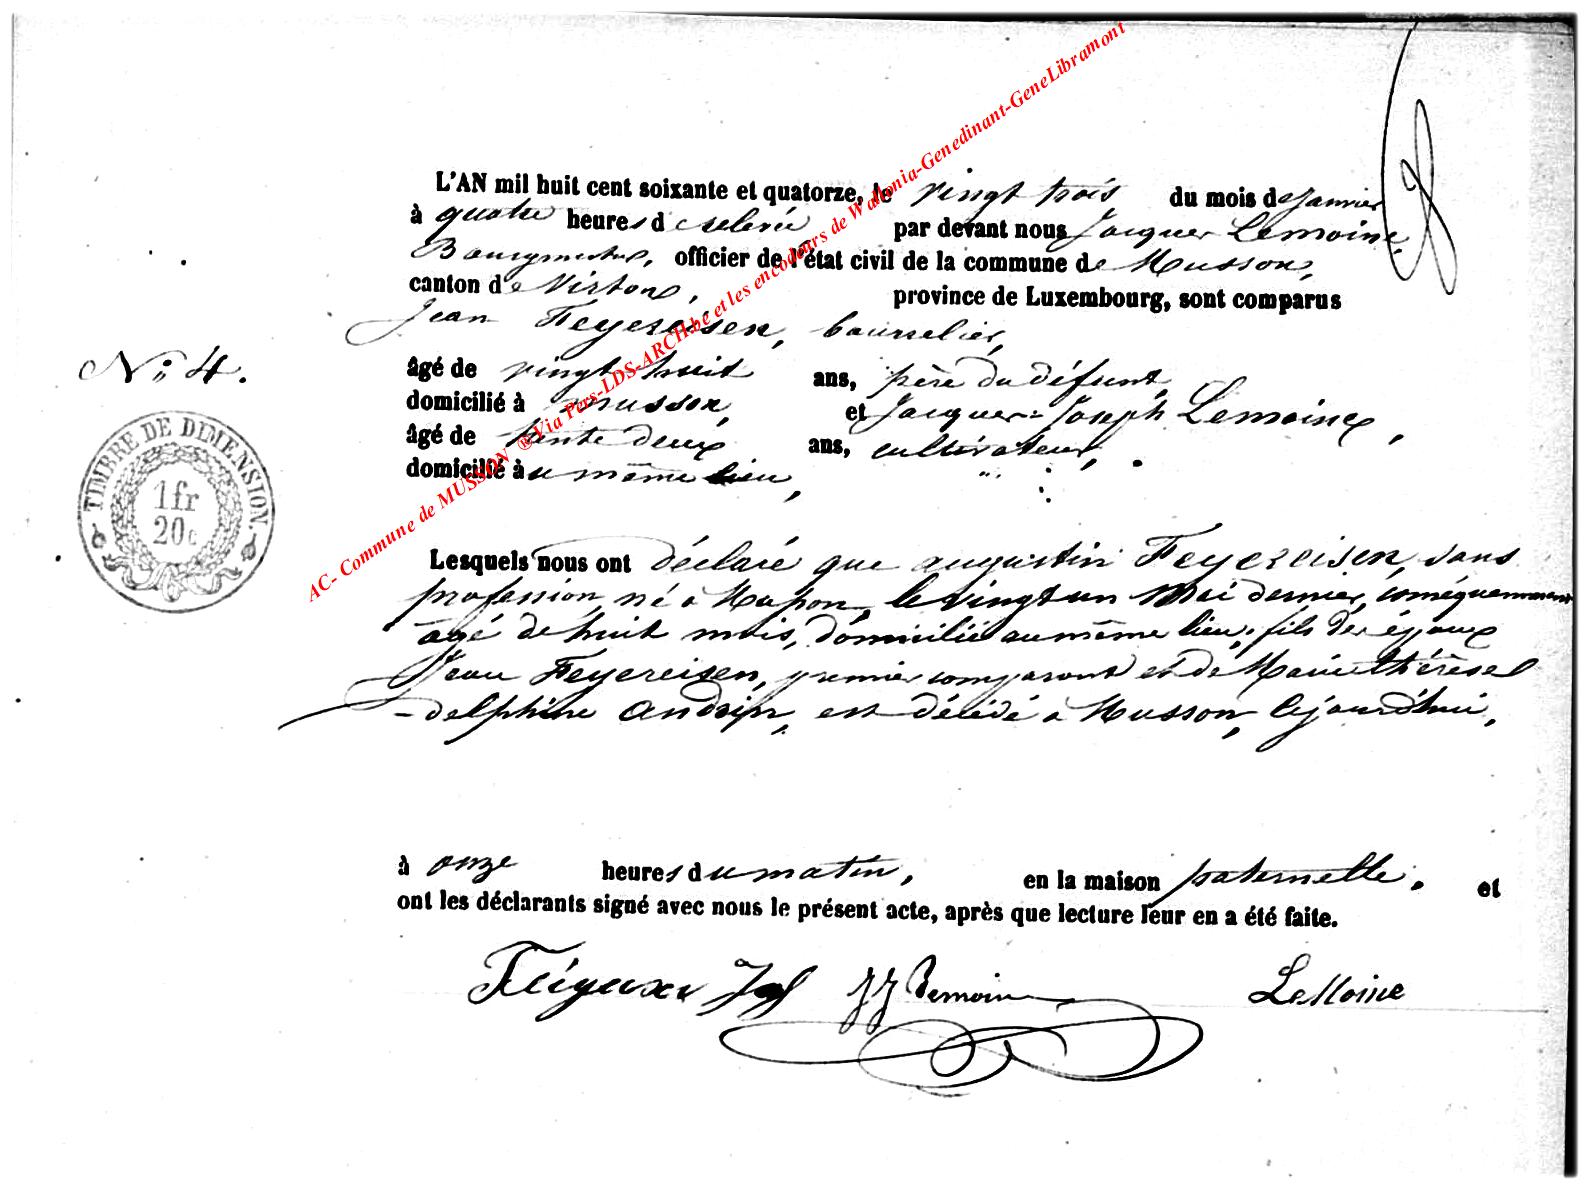 L'AN mil huit cent soixante et quatorze, le vingt trois du mois de Janvier
à quatre heures de relevée par devant nous Jacques Lemoine,
Bourgmestre, officier de l'état civil de la commune de Musson,
canton de Virton, province de Luxembourg, sont comparus
Jean Feyereisen, bourrelier,
N° 4.
âgé de vingt huit ans, père du défunt,
domicilié à Musson, et Jacques-Joseph Lemoine,
âgé de trente deux ans, cultivateur,
domicilié au même lieu,
TIMBRE DE DIMENSION.
1 fr
20 c
Lesquels nous ont déclaré que augustin Feyereisen, sans
profession, né à Musson, le vingt un Mai dernier, conséquemment
âgé de huit mois, domicilié au même lieu, fils des époux
Jean Feyereisen, premier comparant et de Marie thérèse
-delphine andrin, est décédé à Musson, cejourd'hui,
à onze heures du matin, en la maison paternelle, et
ont les déclarants signé avec nous le présent acte, après que lecture leur en a été faite.
JJ Lemoine LeMoine
AC- Commune de MUSSON ® Via Pers-LDS-ARCH.be et les encodeurs de Wallonia-Genedinant-GeneLibramont